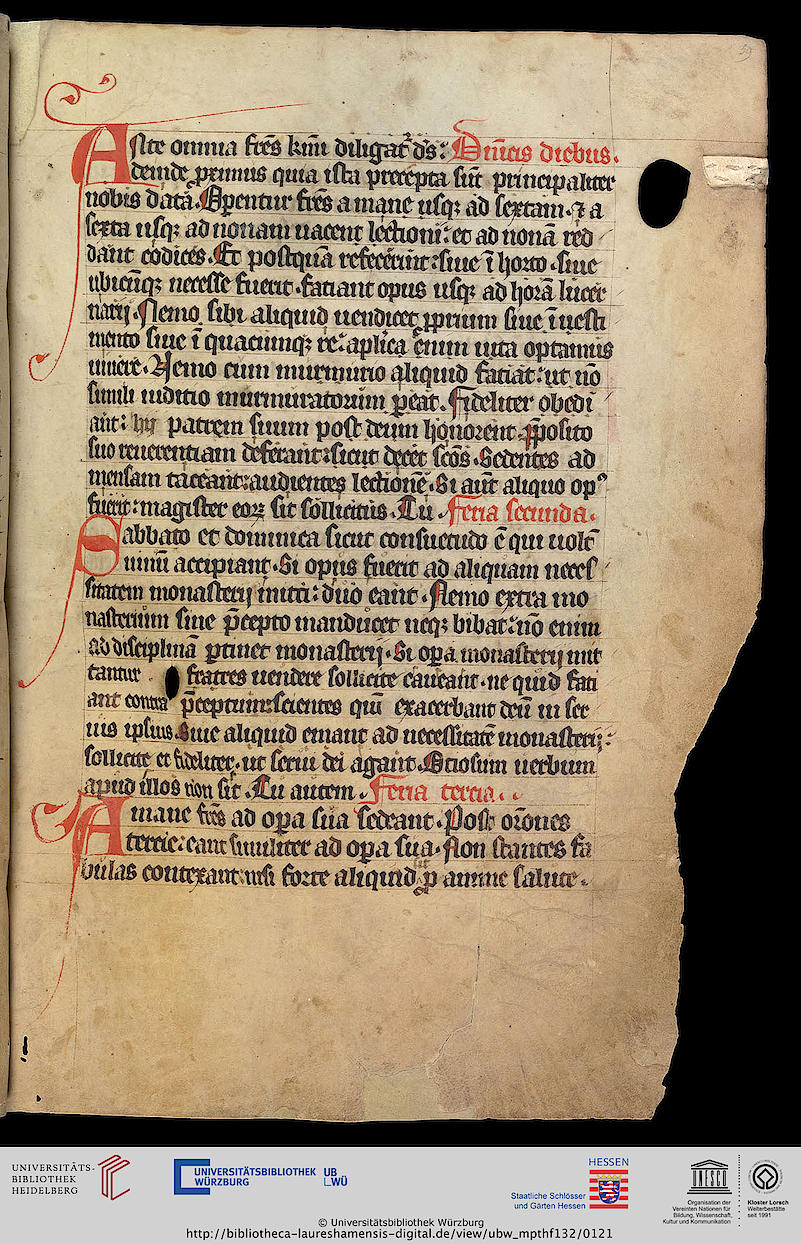 59
Ante omnia fr̄es kr̄mi diligat᷑ d's: D̄nicis diebus.
deinde ꝓximus quia ista precepta sūt principaliter
nobis data. Operentur fr̄es a mane usq; ad sextam. ⁊ a
sexta usq; ad nonam uacent lectioni: et ad nonā red
dant codices. Et postquā refecerint: siue ī horto. siue
ubicūq; necesse fuerit. faciant opus usq; ad horā lucer
narij. Nemo sibi aliquid uendicet ꝓprium siue ī uesti
mento siue ī quacumq; re: aplīca enim uita optamus
uiuere. Nemo cum murmurio aliquid faciat: ut nō
simili iuditio murmuratorum ꝑeat. Fideliter obedi
ant: hij patrem suum post deum honorent. p̄posito
suo reuerentiam deferant: sicut decet sc̄os. Sedentes ad
mensam taceant: audientes lectionē. Si aut̄ aliquo opꝰ
fuerit: magister eoꝝ sit sollicitus. Tu. Feria secunda.
Sabbato et dominica sicut consuetudo ē qui uolt̄
uinū accipiant. Si opus fuerit ad aliquam neces
sitatem monasterij mitti: duo eant. Nemo extra mo
nasterium sine p̄cepto manducet neq; bibat: nō enim
ad disciplinā ꝑtinet monasterij. Si oꝑa monasterij mit
tantur fratres uendere sollicite caueant. ne quid faci
ant contra p̄ceptum: scientes qm̄ exacerbant deū in ser
uis ipsius. Siue aliquid emant ad necessitatē monasterij:
sollicite et fideliter. ut serui dei agant. Otiosum uerbum
apud illos non sit. Tu autem. Feria tercia.
A mane fr̄es ad oꝑa sua sedeant. Post or̄ones
tercie: eant similiter ad oꝑa sua. Non stantes fa
bulas contexant: nisi forte aliquid ꝓ anime salute.
UNIVERSITÄTS-
BIBLIOTHEK
HEIDELBERG
UNIVERSITÄTSBIBLIOTHEK UB
WÜRZBURG WÜ
HESSEN
Staatliche Schlösser
und Gärten Hessen
UNESCO
Organisation der
Vereinten Nationen für
Bildung, Wissenschaft,
Kultur und Kommunikation
Kloster Lorsch
Welterbestätte
seit 1991
© Universitätsbibliothek Würzburg
http://bibliotheca-laureshamensis-digital.de/view/ubw_mpthf132/0121